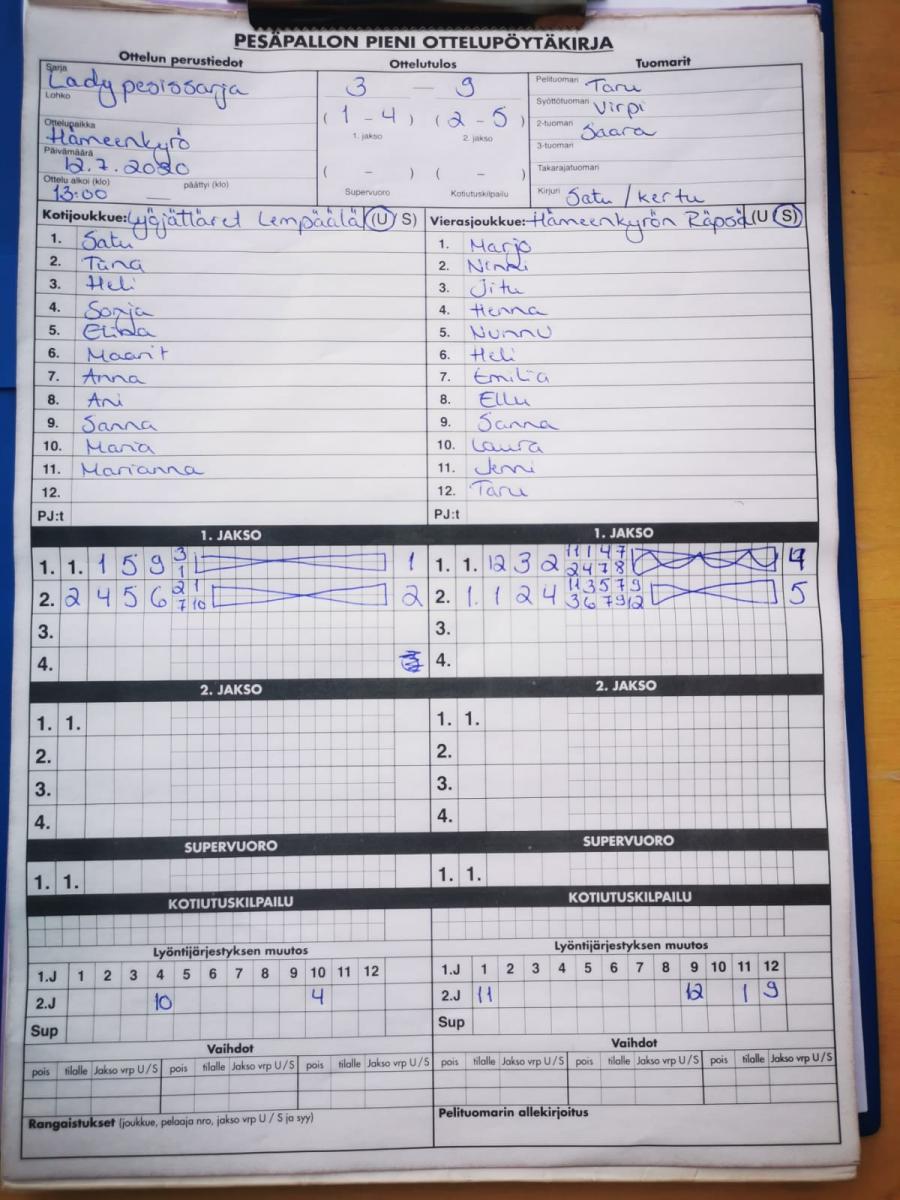 PESÄPALLON PIENI OTTELUPÖYTÄKIRJA
Ottelun perustiedot Ottelutulos Tuomarit
Sarja Ladypesissarja
Lohko
Ottelupaikka Hämeenkyrö
Päivämäärä 12.7.2020
Ottelu alkoi (klo) päättyi (klo)
13:00 —
3 — 9
(1 - 4) (2 - 5)
1. jakso 2. jakso
( - ) ( - )
Supervuoro Kotiutuskilpailu
Pelituomari Taru
Syöttötuomari Virpi
2-tuomari Saara
3-tuomari
Takarajatuomari
Kirjuri Satu / Kertu
Kotijoukkue: Lyöjättäret Lempäälä (U / S)
1. Satu
2.
3. Heli
4. Sonja
5.
6. Maarit
7. Anna
8. Ani
9. Sanna
10. Maria
11. Marianna
12.
PJ:t
Vierasjoukkue: Hämeenkyrön (U / S)
1. Marjo
2. Ninni
3. Jitu
4. Henna
5. Nunnu
6. Heli
7. Emilia
8. Ellu
9. Sanna
10. Laura
11. Jenni
12. Taru
PJ:t
1. JAKSO 1. JAKSO
1. 1. 1 5 9 3 1 1
2. 2 4 5 6 2 1 7 10 2
3.
4.
1. 1. 12 3 2 11 1 4 7 2 4 7 8 4
2. 1. 1 2 4 11 3 5 7 9 3 6 7 9 12 5
3.
4.
2. JAKSO 2. JAKSO
1. 1. 1. 1.
2. 2.
3. 3.
4. 4.
SUPERVUORO SUPERVUORO
1. 1. 1. 1.
KOTIUTUSKILPAILU KOTIUTUSKILPAILU
Lyöntijärjestyksen muutos Lyöntijärjestyksen muutos
1.J 1 2 3 4 5 6 7 8 9 10 11 12 1.J 1 2 3 4 5 6 7 8 9 10 11 12
2.J 10 4 2.J 11 12 1 9
Sup Sup
Vaihdot Vaihdot
pois tilalle Jakso vrp U / S pois tilalle Jakso vrp U / S pois tilalle Jakso vrp U / S pois tilalle Jakso vrp U / S pois tilalle Jakso vrp U / S pois tilalle Jakso vrp U / S
Rangaistukset (joukkue, pelaaja nro, jakso vrp U / S ja syy) Pelituomarin allekirjoitus